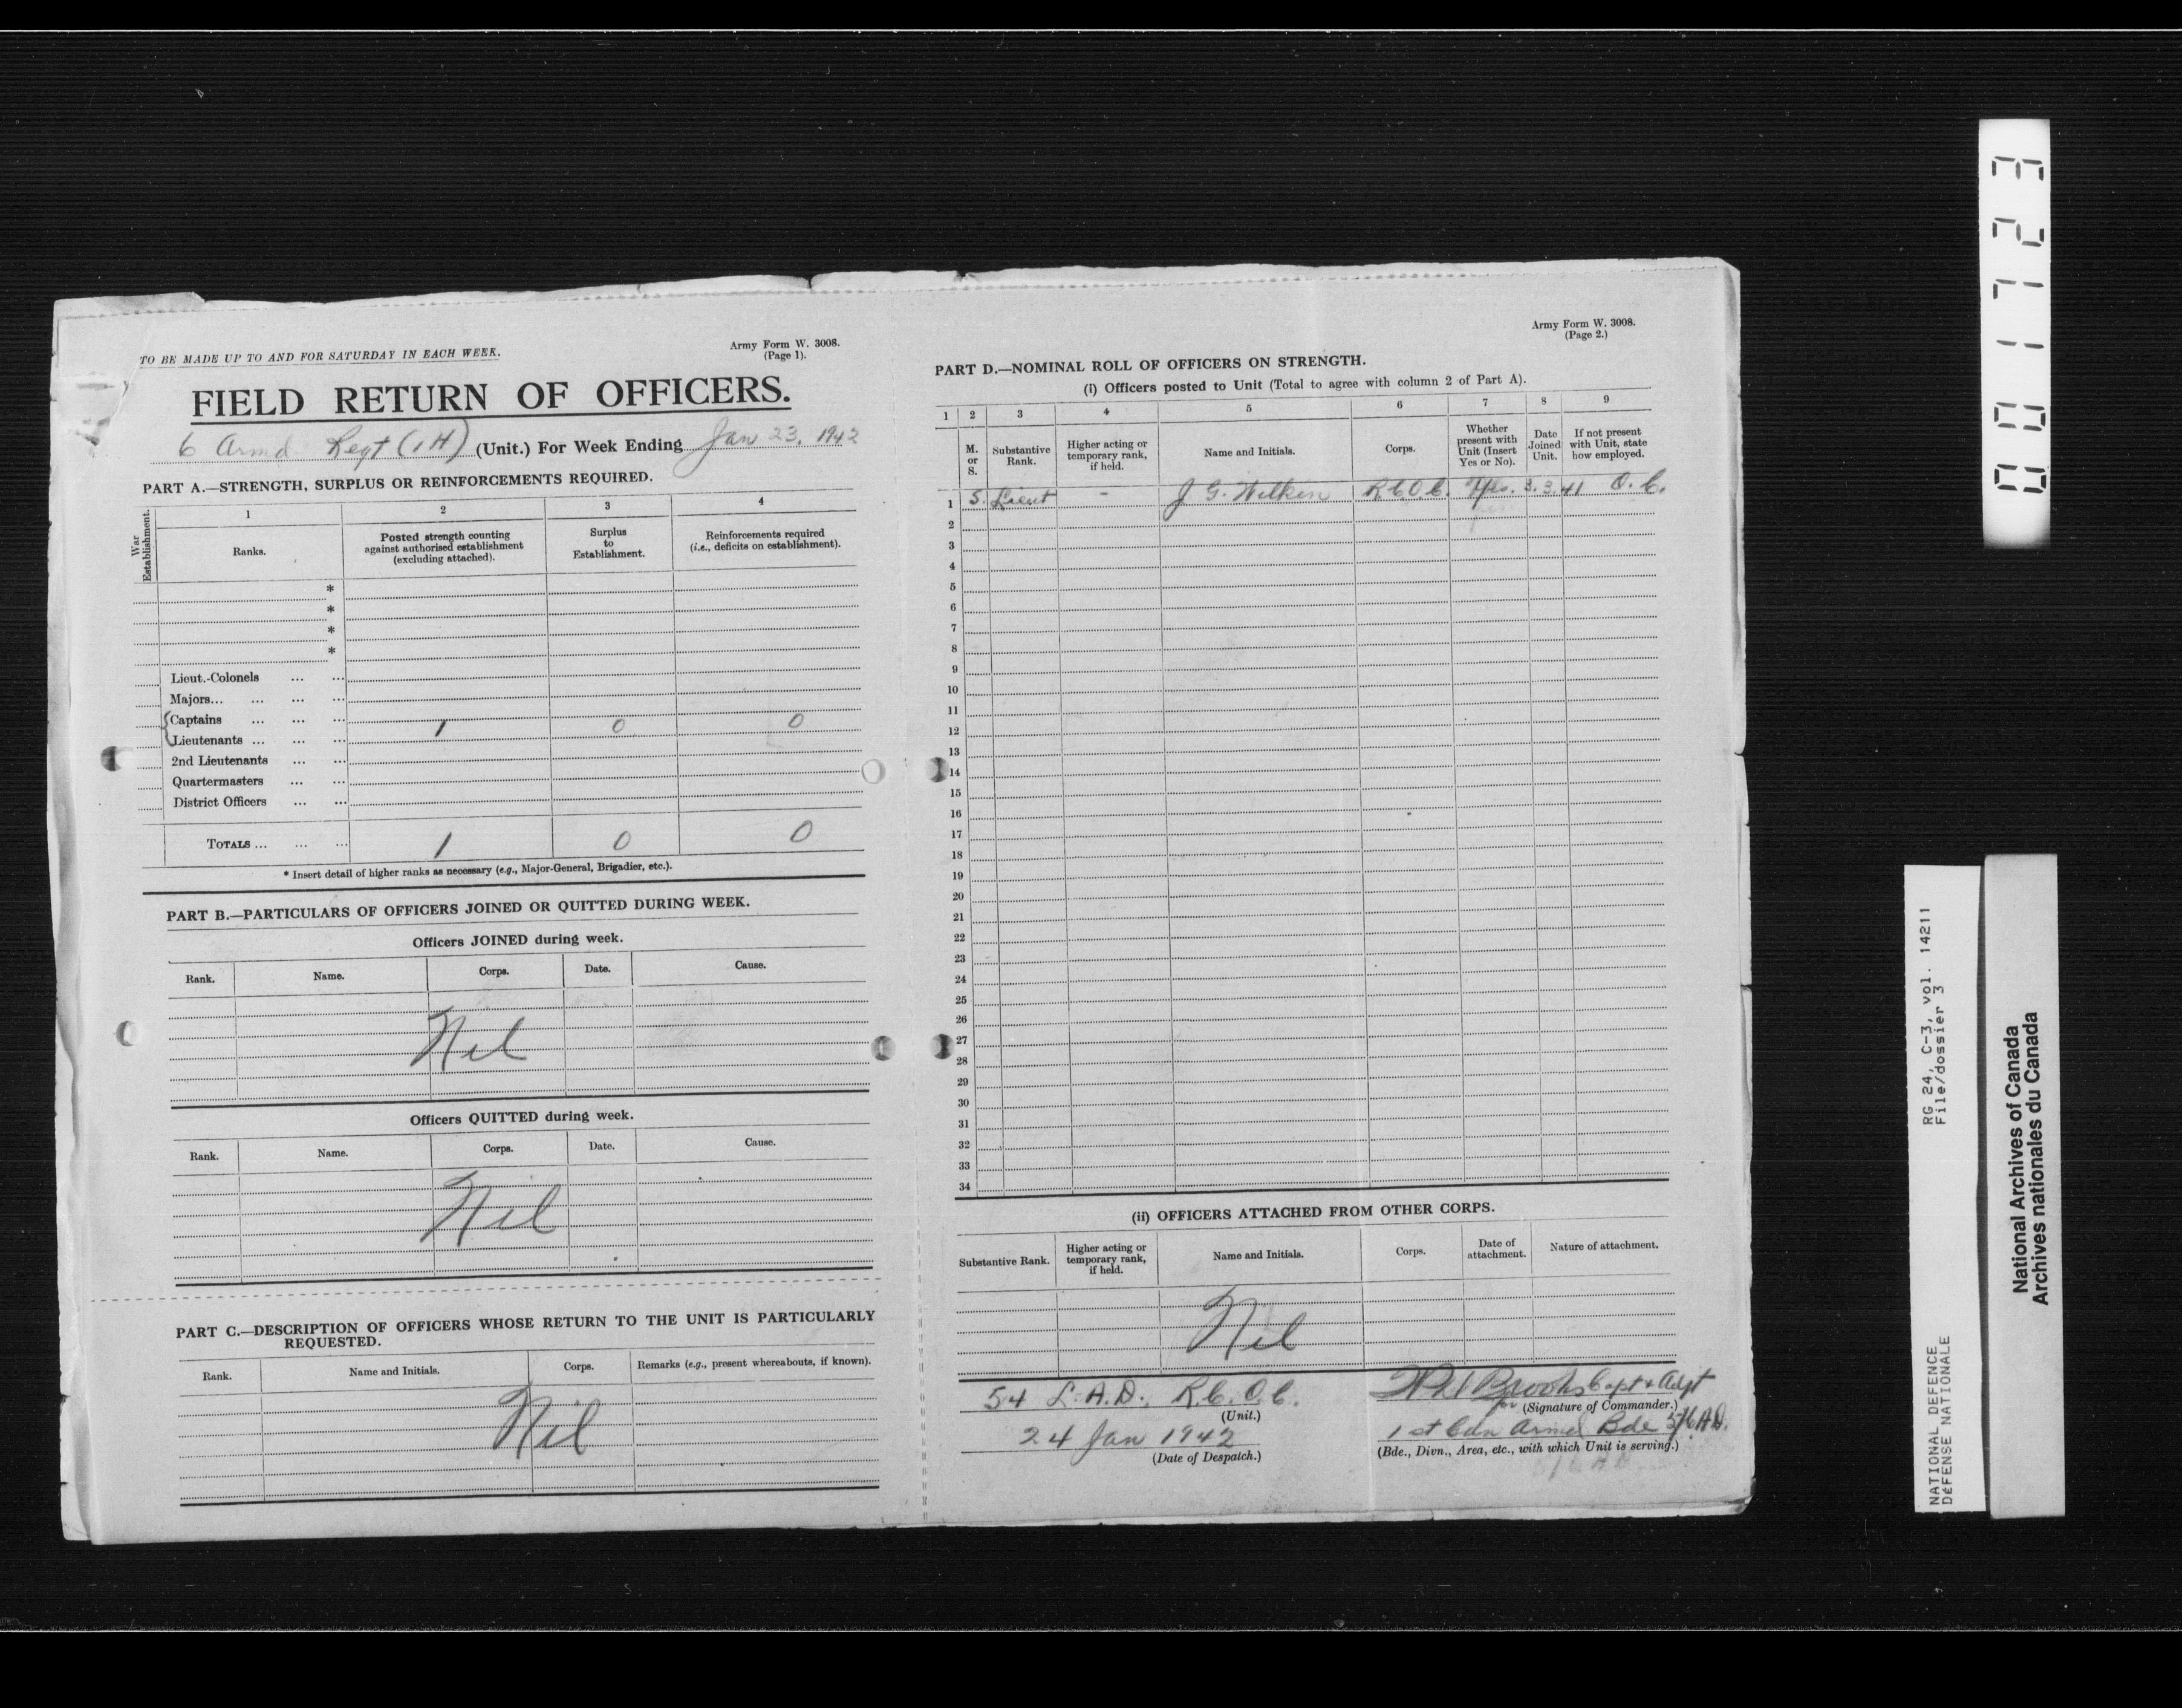 TO BE MADE UP TO AND FOR SATURDAY IN EACH WEEK.
Army Form W. 3008.
(Page 1).
FIELD RETURN OF OFFICERS.
6 Armd. Regt (1H) (Unit.) For Week Ending Jan 23, 1942
PART A.—STRENGTH, SURPLUS OR REINFORCEMENTS REQUIRED.
War Establishment.
1 2 3 4
Ranks.
Posted strength counting against authorised establishment (excluding attached).
Surplus to Establishment.
Reinforcements required (i.e., deficits on establishment).
*
*
*
*
Lieut.-Colonels ... ...
Majors... ... ... ...
Captains ... ... ...
Lieutenants ... ... ... 1 0 0
2nd Lieutenants ... ...
Quartermasters ... ...
District Officers ... ...
TOTALS ... ... ... 1 0 0
* Insert detail of higher ranks as necessary (e.g., Major-General, Brigadier, etc.).
PART B.—PARTICULARS OF OFFICERS JOINED OR QUITTED DURING WEEK.
Officers JOINED during week.
Rank. Name. Corps. Date. Cause.
Nil
Officers QUITTED during week.
Rank. Name. Corps. Date. Cause.
Nil
PART C.—DESCRIPTION OF OFFICERS WHOSE RETURN TO THE UNIT IS PARTICULARLY
REQUESTED.
Rank. Name and Initials. Corps. Remarks (e.g., present whereabouts, if known).
Nil
Army Form W. 3008.
(Page 2.)
PART D.—NOMINAL ROLL OF OFFICERS ON STRENGTH.
(i) Officers posted to Unit (Total to agree with column 2 of Part A).
1 2 3 4 5 6 7 8 9
M. or S.
Substantive Rank.
Higher acting or temporary rank, if held.
Name and Initials.
Corps.
Whether present with Unit (Insert Yes or No).
Date Joined Unit.
If not present with Unit, state how employed.
1 S. Lieut - J G. Wilken R.C.O.C. Yes. 3.3.41 O.C.
2
3
4
5
6
7
8
9
10
11
12
13
14
15
16
17
18
19
20
21
22
23
24
25
26
27
28
29
30
31
32
33
34
(ii) OFFICERS ATTACHED FROM OTHER CORPS.
Substantive Rank.
Higher acting or temporary rank, if held.
Name and Initials.
Corps.
Date of attachment.
Nature of attachment.
Nil
54 L.A.D., R.C.O.C.
(Unit.)
24 Jan 1942
(Date of Despatch.)
Brooks Capt & Adjt
for (Signature of Commander.)
1st Cdn Armd Bde
(Bde., Divn., Area, etc., with which Unit is serving.)
001723
RG 24, C-3, vol. 14211
File/dossier 3
NATIONAL DEFENCE
DÉFENSE NATIONALE
National Archives of Canada
Archives nationales du Canada